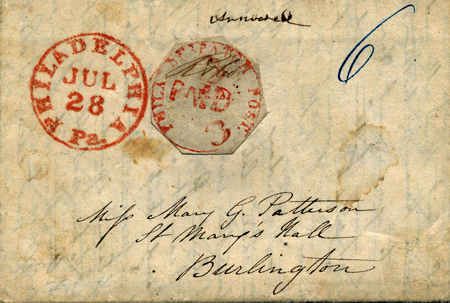 Answered
6
PHILADELPHIA Pa.
JUL
28
PHILAD DESPATCH POST.
PAID
3
Miss Mary G. Patterson
St Mary's Hall
Burlington